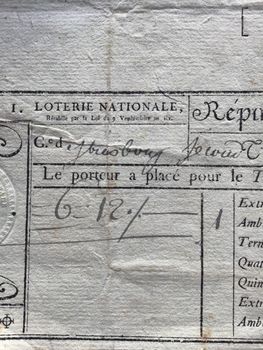 1. LOTERIE NATIONALE, Répu
Rétablie par la Loi du 9 Vendémiaire an VI.
C.e de Strasbourg Second T
Le porteur a placé pour le T
6 - 12 - / 1
Ext
Amb
Tern
Quat
Quin
Extr
Amb